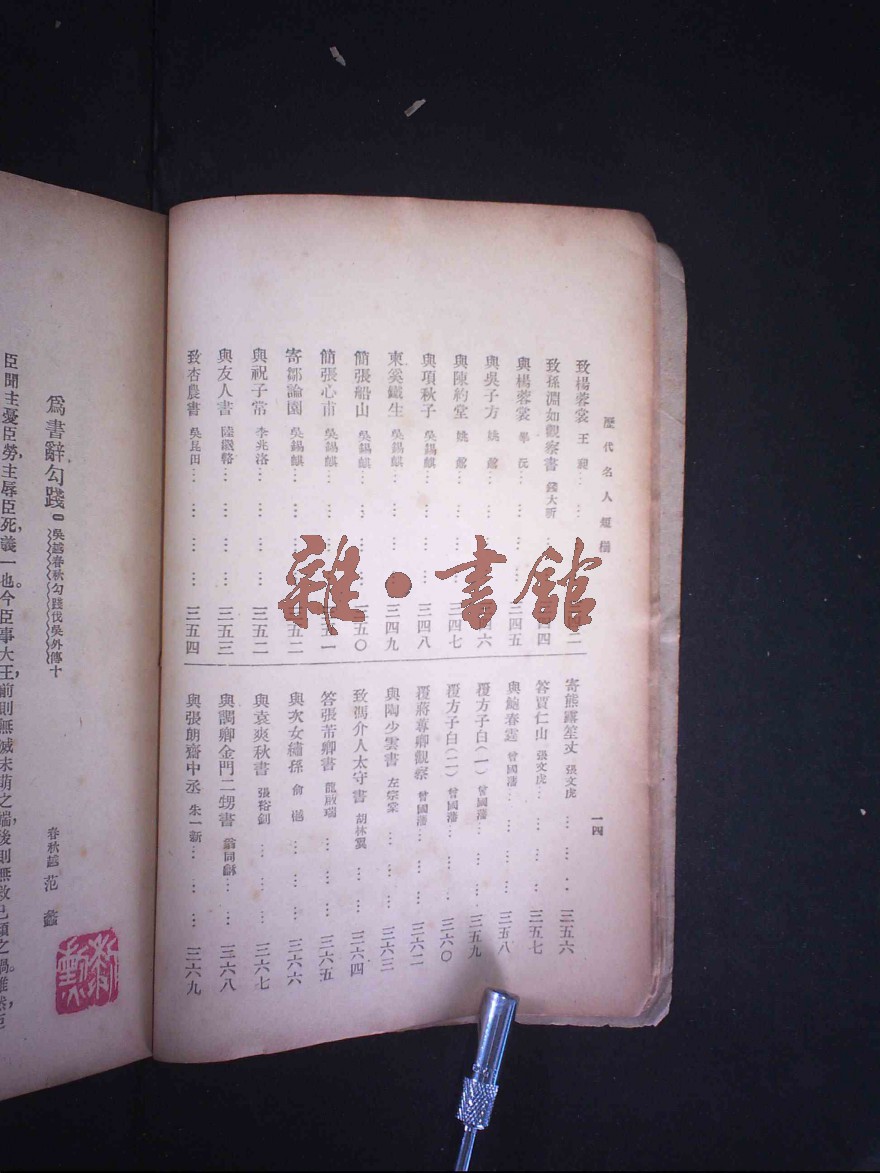 歷代名人短檄
一四
致楊蓉裳 王昶
致孫淵如觀察書 錢大昕
與楊蓉裳 畢沅 三四五
與吳子方 姚鼐
與陳約堂 姚鼐 三四七
與項秋子 吳錫麒 三四八
柬奚鐵生 吳錫麒 三四九
簡張船山 吳錫麒 三五〇
簡張心甫 吳錫麒
寄鄒論園 吳錫麒
與祝子常 李兆洛 三五二
與友人書 陸繼輅 三五三
致杏農書 吳昆田 三五四
寄熊露笙丈 張文虎 三五六
答賈仁山 張文虎 三五七
與鮑春霆 曾國藩 三五八
覆方子白(一) 曾國藩 三五九
覆方子白(二) 曾國藩 三六〇
覆蔣蓴卿觀察 曾國藩 三六二
與陶少雲書 左宗棠 三六三
致馮介人太守書 胡林翼 三六四
答張芾卿書 龍啟瑞 三六五
與次女繡孫 俞樾 三六六
與袁爽秋書 張裕釗 三六七
與調卿金門二甥書 翁同龢 三六八
與張朗齋中丞 朱一新 三六九
雜·書館
為書辭勾踐 吳越春秋勾踐伐吳外傳十
春秋越 范蠡
臣聞主憂臣勞,主辱臣死,義一也。今臣事大王,前則無滅未萌之端,後則無救已傾之禍。雖然,臣